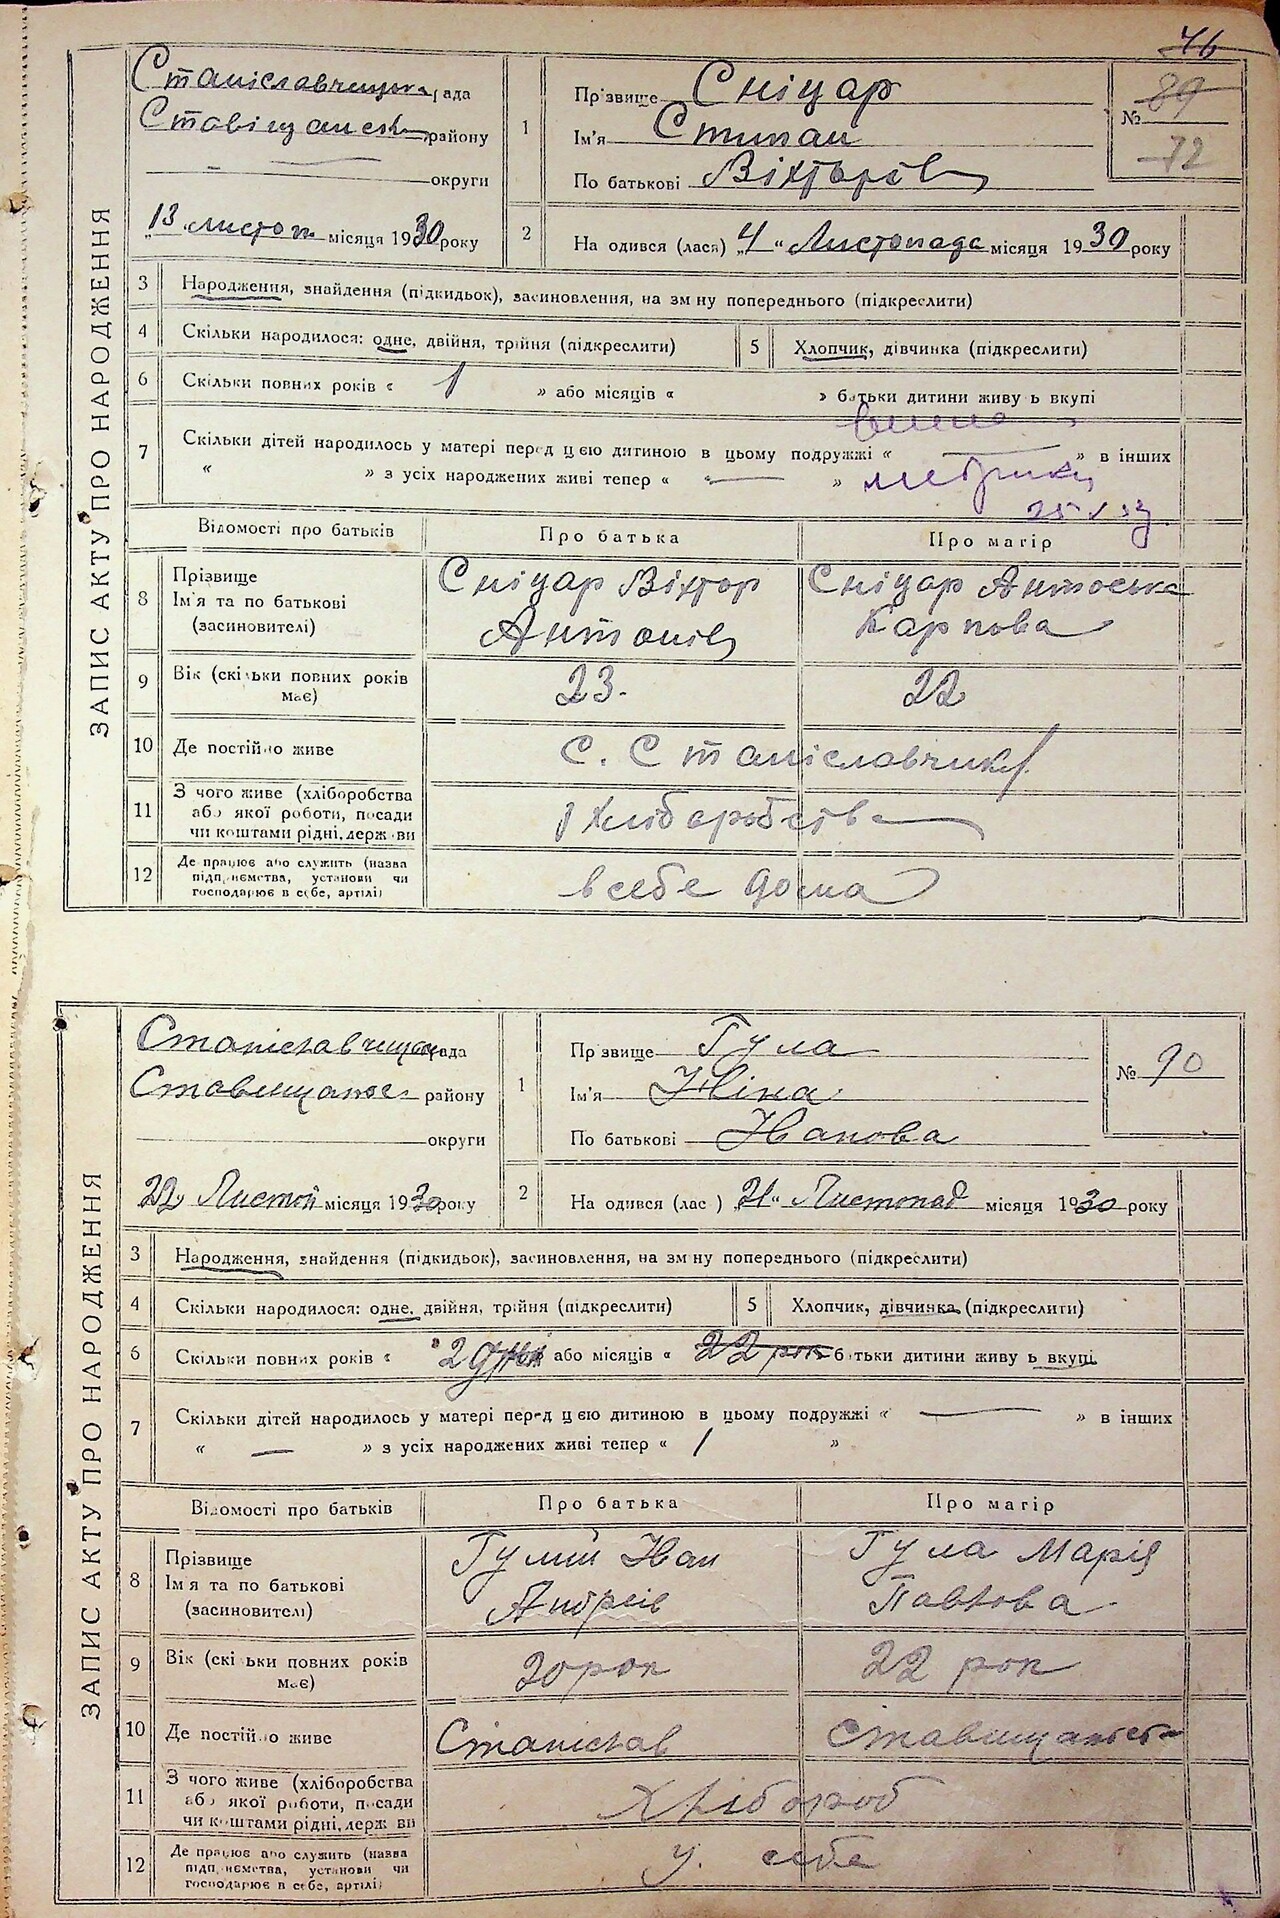 46
ЗАПИС АКТУ ПРО НАРОДЖЕННЯ
Станіславчицька рада
району
округи
13 листоп місяця 1930 року
1
Прізвище Сніцар
Ім'я Степан
По батькові Вікторов
№ 89
72
2
На одився (лася) „4" Листопада місяця 1930 року
3 Народження, знайдення (підкидьок), засиновлення, на зм ну попереднього (підкреслити)
4 Скільки народилося: одне, двійня, трійня (підкреслити)
5 Хлопчик, дівчинка (підкреслити)
6 Скільки повних років « 1 » або місяців « » батьки дитини живу ь вкупі
7 Скільки дітей народилось у матері перед цією дитиною в цьому подружжі « — » в інших
« » з усіх народжених живі тепер « — »
метрику
Відомості про батьків
Про батька
Про матір
8 Прізвище
Ім'я та по батькові
(засиновителі)
Сніцар Віктор
Антонів
Сніцар Антоська
Карпова
9 Вік (скільки повних років
має)
23.
22
10 Де постійно живе
с. Станіславчик
11 З чого живе (хліборобства
або якої роботи, посади
чи коштами рідні, держ ви
Хліборобства
12 Де працює або служить (назва
підприємства, установи чи
господарює в себе, артілі)
в себе дома
ЗАПИС АКТУ ПРО НАРОДЖЕННЯ
рада
району
округи
22 Листоп місяця 1930 року
1
Пр звище Гула
Ім'я Ніна
По батькові Іванова
№ 90
2
На одився (лас ) „21" Листопад місяця 1930 року
3 Народження, знайдення (підкидьок), засиновлення, на зм ну попереднього (підкреслити)
4 Скільки народилося: одне, двійня, трійня (підкреслити)
5 Хлопчик, дівчинка (підкреслити)
6 Скільки повних років « 2 або місяців « 22 рок батьки дитини живу ь вкупі
7 Скільки дітей народилось у матері перед цією дитиною в цьому подружжі « — » в інших
« — » з усіх народжених живі тепер « 1 »
Відомості про батьків
Про батька
Про матір
8 Прізвище
Ім'я та по батькові
(засиновителі)
Іван
Андреів
Гула Марія
Павлова
9 Вік (скі ьки повних років
має)
30 рок
22 рок
10 Де постійно живе
Станіслав
11 З чого живе (хліборобства
або якої роботи, посади
чи коштами рідні, держ ви
Хлібороб
12 Де працює або служить (назва
підприємства, установи чи
господарює в себе, артілі)
у себе